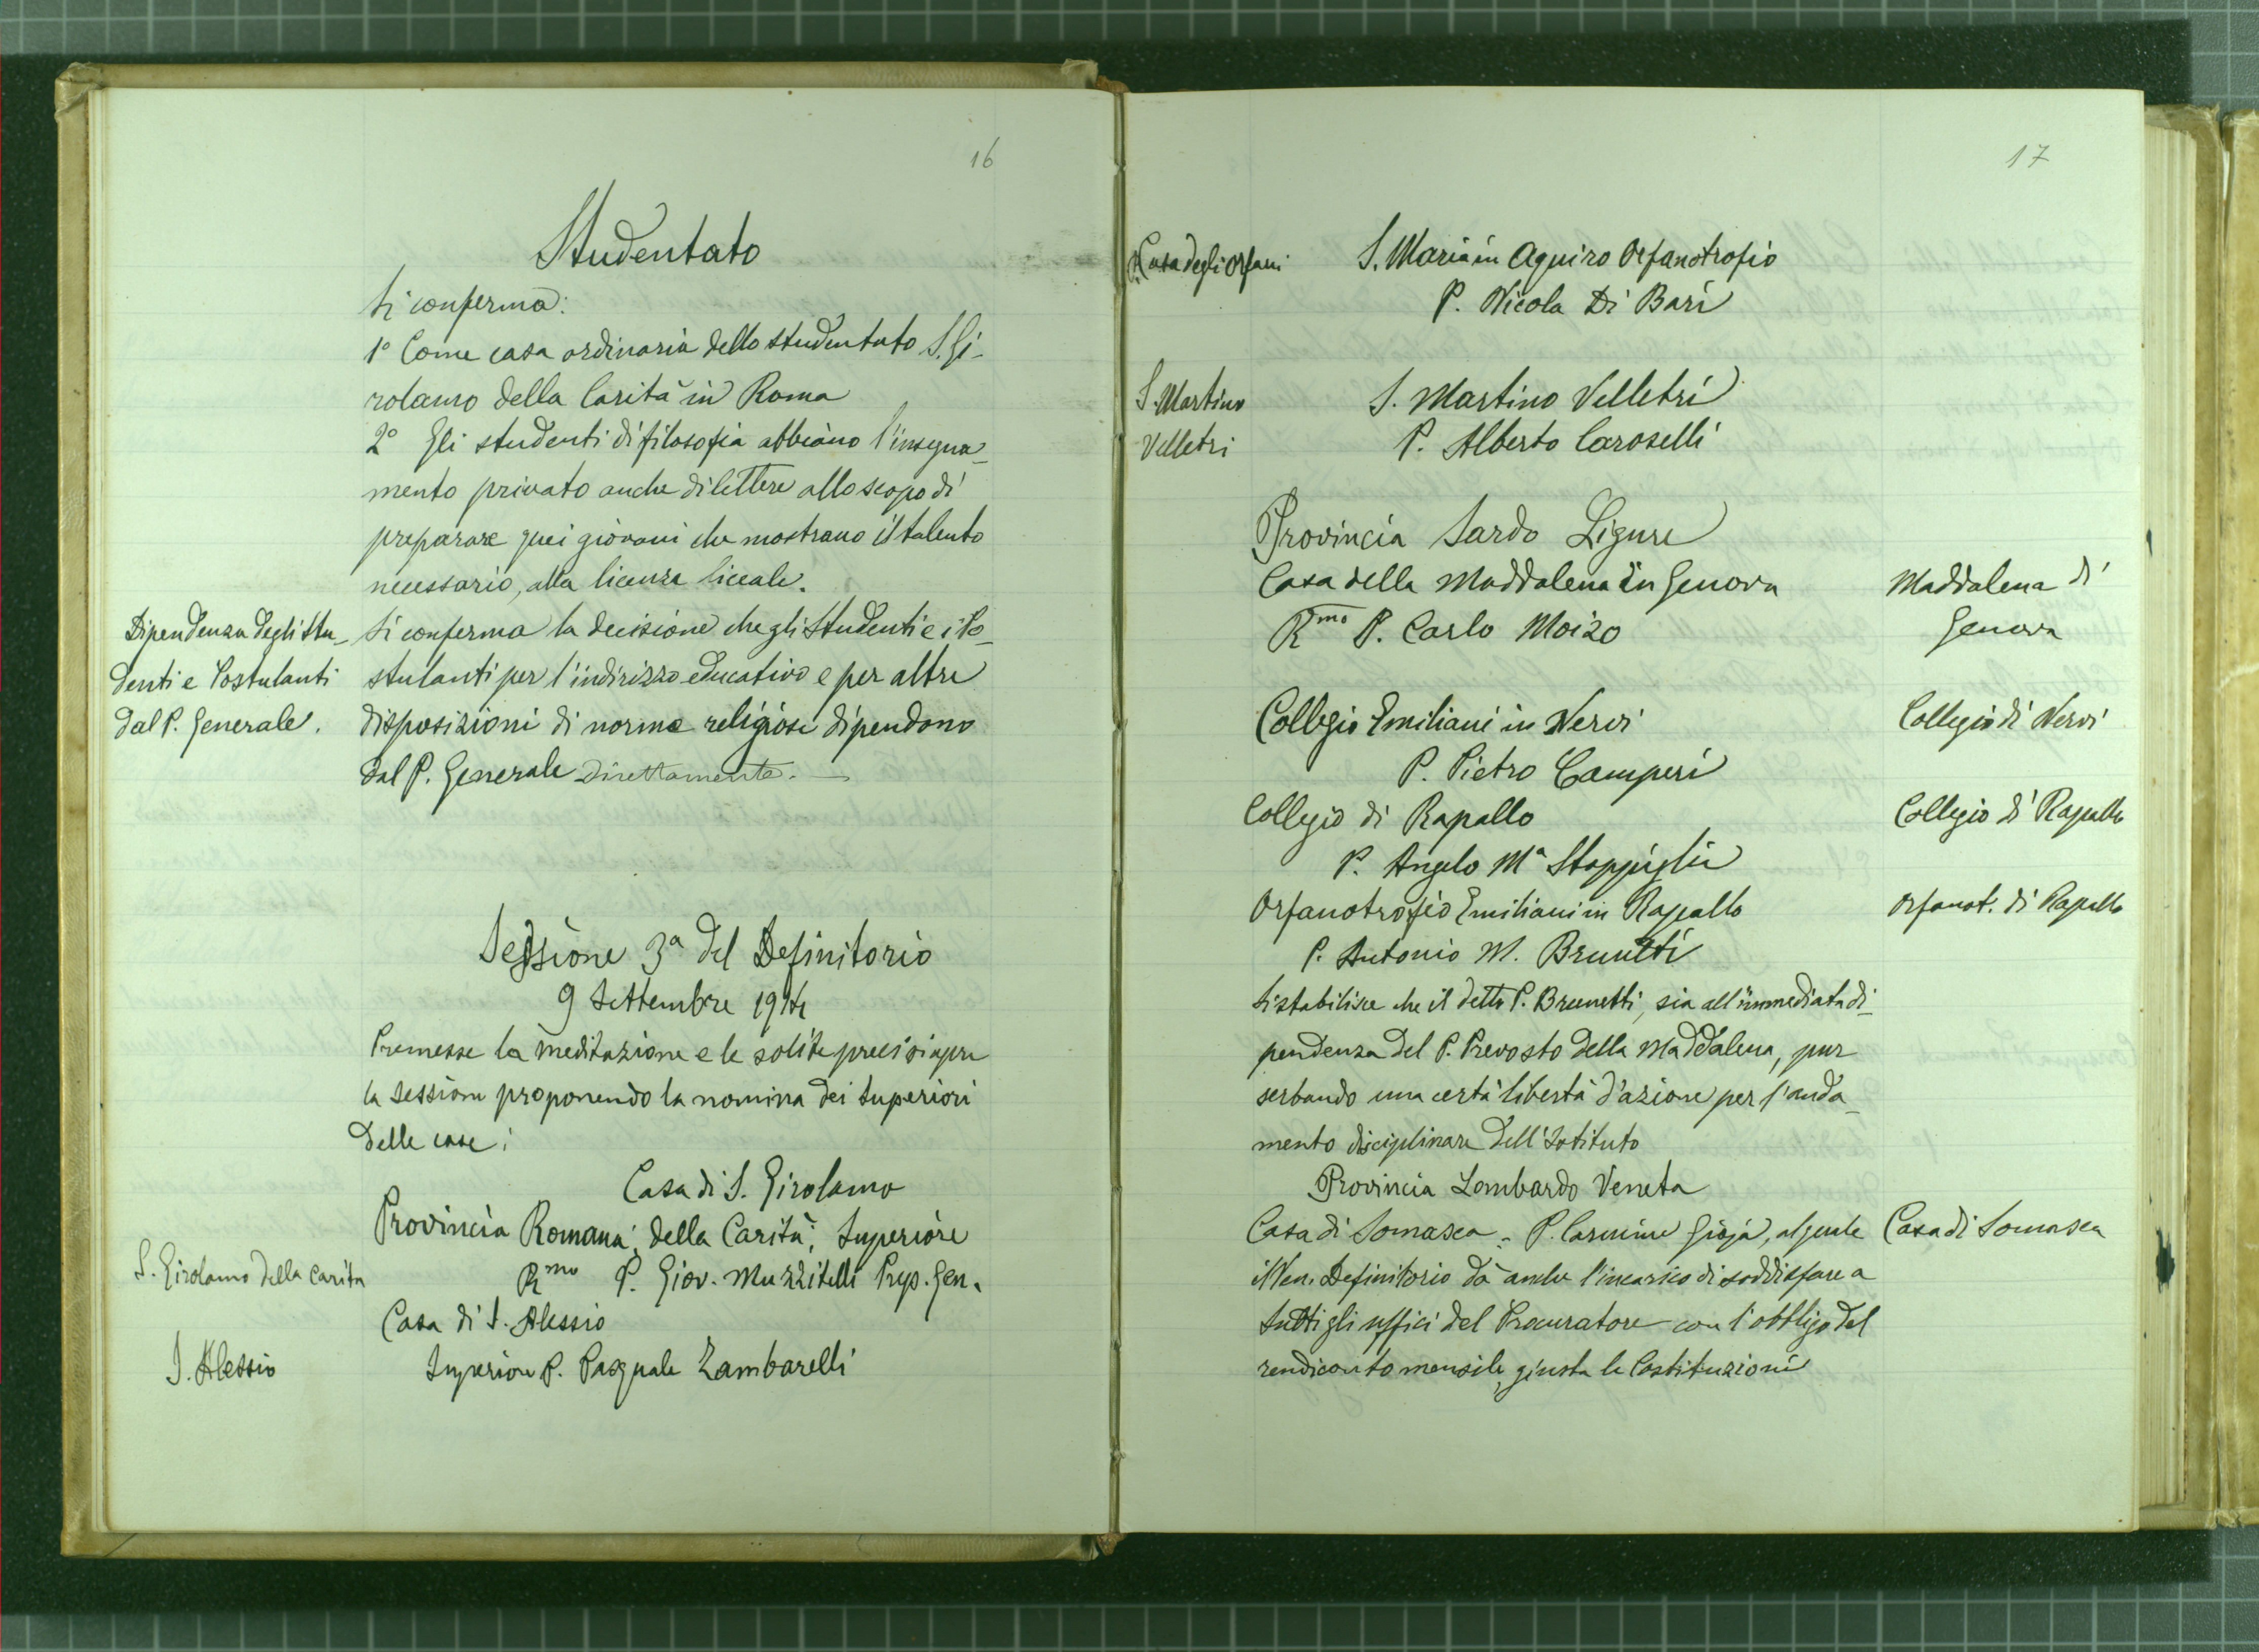 16
Studentato
Si conferma:
1° Come casa ordinaria dello studentato S. Gi-
rolamo della Carità in Roma
2° Gli studenti di filosofia abbiano l'insegna-
mento privato anche di lettere allo scopo di
preparare quei giovani che mostrano il talento
necessario, alla licenza liceale.
Dipendenza degli Stu-
denti e Postulanti
dal P. Generale.
Si conferma la decisione che gli Studenti e i Po-
stulanti per l'indirizzo educativo e per altre
disposizioni di norma religiose dipendono
dal P. Generale direttamente. —
Sessione 3ª del Definitorio
9 Settembre 1914
Premesse la meditazione e le solite preci si apre
la sessione proponendo la nomina dei Superiori
delle case:
Casa di S. Girolamo
Provincia Romana: della Carità: Superiore
S. Girolamo della Carità
Rmo P. Giov. Muzzitelli Prep. Gen.
Casa di S. Alessio
S. Alessio
Superiore P. Pasquale Zambarelli
17
Casa degli Orfani
S. Maria in Aquiro Orfanotrofio
P. Nicola Di Bari
S. Martino
Velletri
S. Martino Velletri
P. Alberto Caroselli
Provincia Sardo Ligure
Casa della Maddalena in Genova
Maddalena di
Genova
Rmo P. Carlo Moizo
Collegio Emiliani in Nervi
Collegio di Nervi
P. Pietro Camperi
Collegio di Rapallo
Collegio di Rapallo
P. Angelo Mª Stoppiglia
Orfanotrofio Emiliani in Rapallo
Orfanot. di Rapallo
P. Antonio M. Brunetti
Si stabilisce che il detto P. Brunetti, sia all'immediata di-
pendenza del P. Prevosto della Maddalena, pur
serbando una certa libertà d'azione per l'anda-
mento disciplinare dell'Istituto
Provincia Lombardo Veneta
Casa di Somasca:- P. Carmine Gioja, al quale
Casa di Somasca
il Ven. Definitorio dà anche l'incarico di soddisfare a
tutti gli uffici del Procuratore con l'obbligo del
rendiconto mensile, giusta le Costituzioni